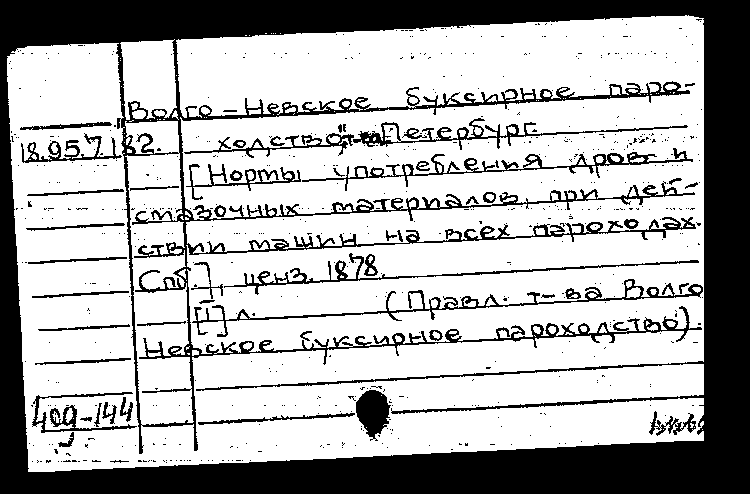 "Волго-Невское буксирное паро-
18.95.7.182. ходство", Петербург.
[Нормы употребления дров и
смазочных материалов, при дей-
ствии машин на всех пароходах.
Спб.], ценз. 1878.
[1] л. (Правл. т-ва Волго
Невское буксирное пароходство).
409-144